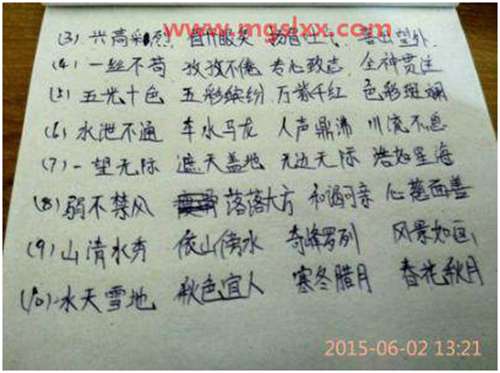 www.mgslxx.com
(3) 兴高彩烈 眉开眼笑 扬眉吐气 喜出望外
(4) 一丝不苟 孜孜不倦 专心致志 全神贯注
(5) 五光十色 五彩缤纷 万紫千红 色彩斑斓
(6) 水泄不通 车水马龙 人声鼎沸 川流不息
(7) 一望无际 遮天盖地 无边无际 浩如星海
(8) 弱不禁风 落落大方 和谒可亲 心慈面善
(9) 山清水秀 依山傍水 奇峰罗列 风景如画
(10) 水天雪地 秋色宜人 寒冬腊月 春花秋月
2015-06-02 13:21